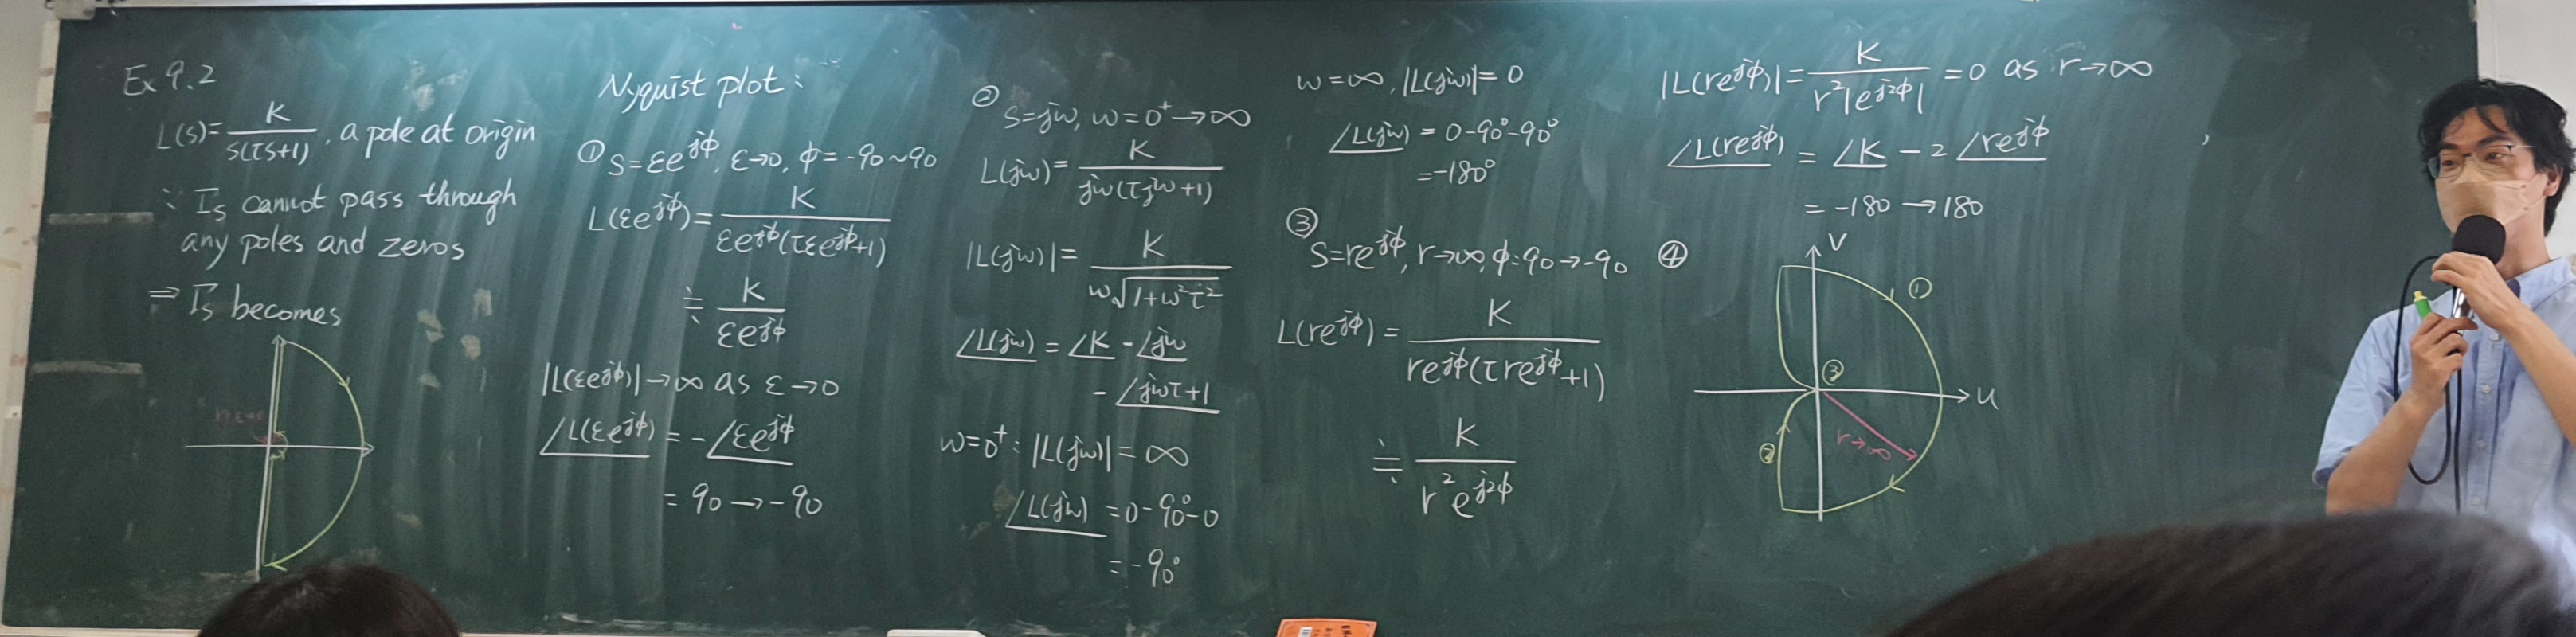 Ex 9.2
L(s)=K/s(τs+1), a pole at origin
∵ Γs cannot pass through
any poles and zeros
⇒ Γs becomes
Nyquist plot:
① s=εe^jφ, ε→0, φ=-90~90
L(εe^jφ)=K/εe^jφ(τεe^jφ+1)
≒K/εe^jφ
|L(εe^jφ)|→∞ as ε→0
∠L(εe^jφ) = -∠εe^jφ
= 90→-90
②
s=jω, ω=0⁺→∞
L(jω)=K/jω(τjω+1)
|L(jω)|=K/ω√(1+ω²τ²)
∠L(jω) = ∠K - ∠jω
- ∠jωτ+1
ω=0⁺: |L(jω)|=∞
∠L(jω) =0-90°-0
=-90°
ω=∞, |L(jω)|=0
∠L(jω) = 0-90°-90°
=-180°
③
s=re^jφ, r→∞, φ:90→-90
L(re^jφ)=K/re^jφ(τre^jφ+1)
≒K/r²e^j2φ
|L(re^jφ)|=K/r²|e^j2φ|=0 as r→∞
∠L(re^jφ) = ∠K - 2∠re^jφ
= -180→180
④
V
①
③
U
r→∞
②